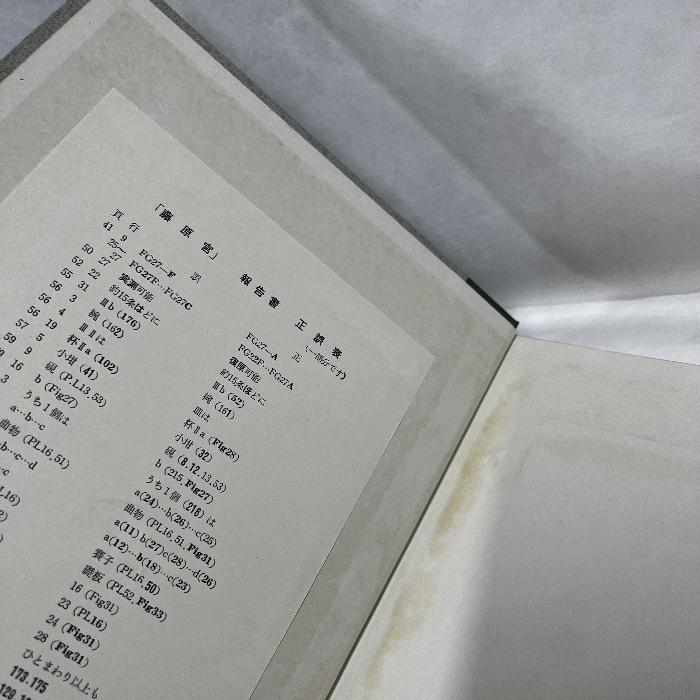 「藤原宮」 報告書 正誤表 (一部分です)
頁 行 誤 正
41 9 FG27—F FG27—A
50 25〜27 FG27F…FG27C FG22F…FG27A
52 27 実測可能 復原可能
55 22 約15条ほどに 約15条ほどに
56 31 Ⅲb (176) Ⅲb (52)
56 3 椀 (162) 椀 (161)
56 4 ⅢⅡは Ⅲは
56 19 杯Ⅱa (102) 杯Ⅱa (Fig28)
57 5 小坩 (41) 小坩 (32)
59 9 硯 (P.L13,53) 硯 (8.12.13,53)
16 b (Fig27) b (215,Fig27)
3 うち1個は うち1個 (218) は
a…b…c a(24)…b(26)…c(25)
曲物 (PL16,51) 曲物 (PL16,51,Fig31)
b…c…d a(11) b(27)c(28)…d(26)
c a(12)…b(18)…c(23)
PL16) 簀子 (PL16,50)
2) 礎板 (PL52,Fig33)
16 (Fig31)
23 (PL16)
24 (Fig31)
28 (Fig31)
ひとまわり以上も
173.175